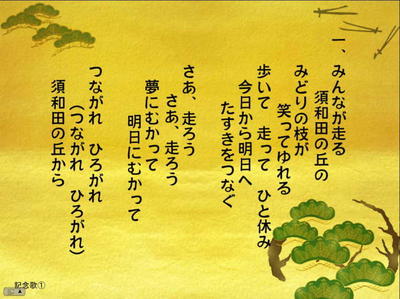 一、みんなが走る
須和田の丘の
みどりの枝が
笑ってゆれる
歩いて　走って　ひと休み
今日から明日へ
たすきをつなぐ
さあ、走ろう
さあ、走ろう
夢にむかって
明日にむかって
つながれ　ひろがれ
（つながれ　ひろがれ）
須和田の丘から
記念歌①